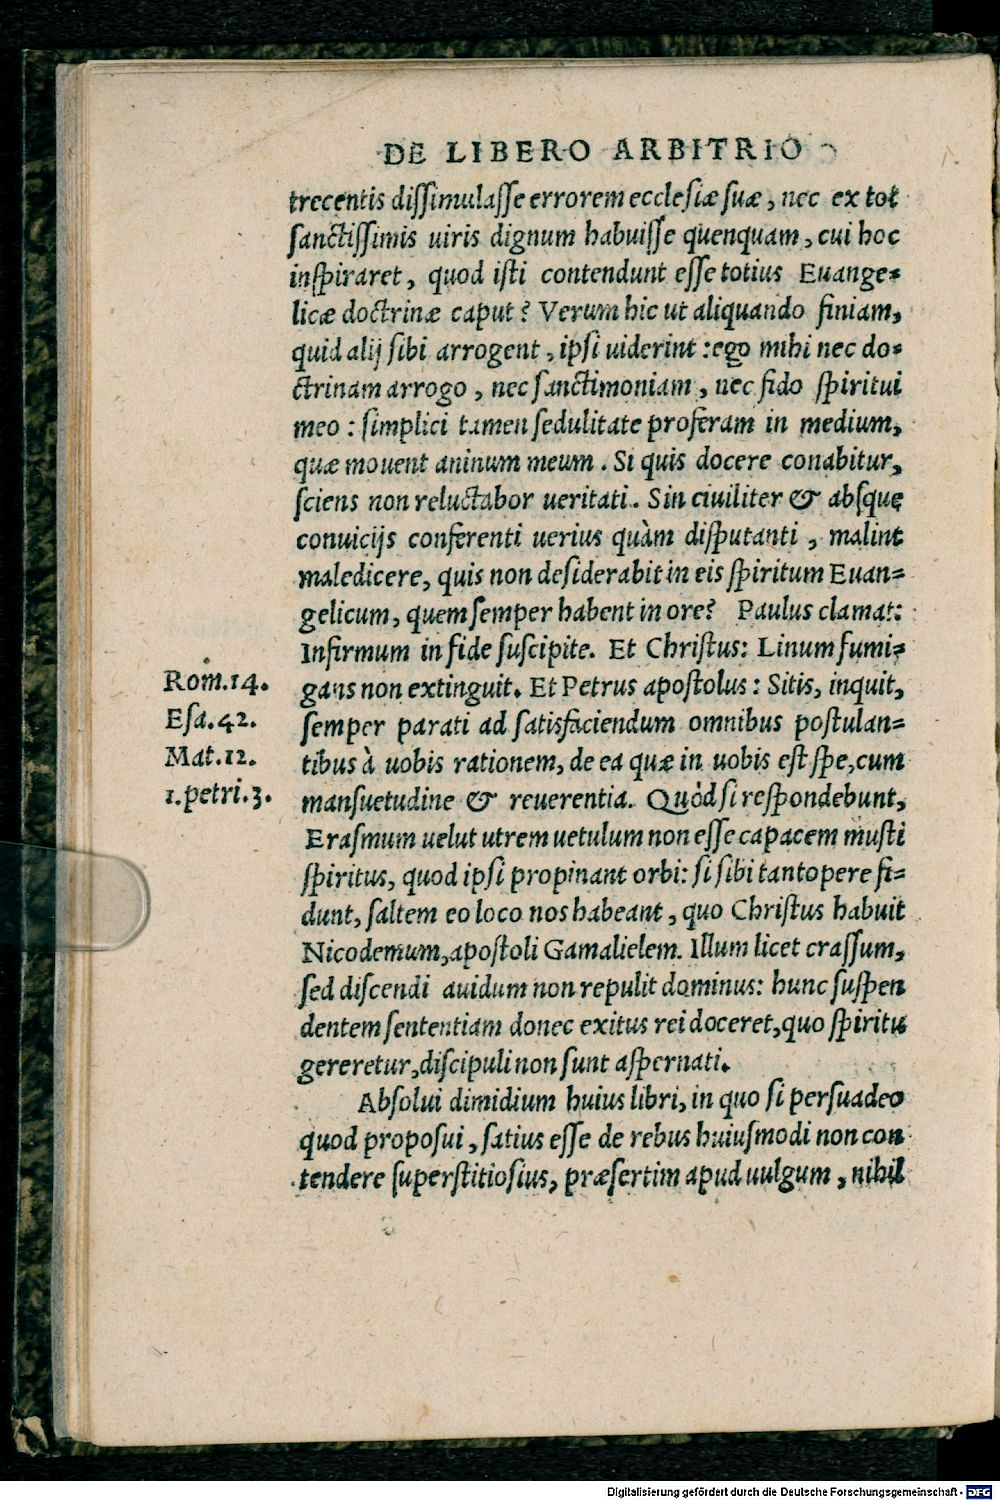 DE LIBERO ARBITRIO
trecentis dissimulasse errorem ecclesiæ suæ, nec ex tot
sanctissimis uiris dignum habuisse quenquam, cui hoc
inspiraret, quod isti contendunt esse totius Euange-
licæ doctrinæ caput? Verum hic ut aliquando finiam,
quid alij sibi arrogent, ipsi uiderint: ego mihi nec do-
ctrinam arrogo, nec sanctimoniam, nec fido spiritui
meo: simplici tamen sedulitate proferam in medium,
quæ mouent aninum meum. Si quis docere conabitur,
sciens non reluctabor ueritati. Sin ciuiliter & absque
conuicijs conferenti uerius quàm disputanti, malint
maledicere, quis non desiderabit in eis spiritum Euan-
gelicum, quem semper habent in ore? Paulus clamat:
Infirmum in fide suscipite. Et Christus: Linum fumi-
Rom.14. gans non extinguit. Et Petrus apostolus: Sitis, inquit,
Esa.42. semper parati ad satisfaciendum omnibus postulan-
Mat.12. tibus à uobis rationem, de ea quæ in uobis est spe, cum
1.petri.3. mansuetudine & reuerentia. Quòd si respondebunt,
Erasmum uelut utrem uetulum non esse capacem musti
spiritus, quod ipsi propinant orbi: si sibi tantopere fi-
dunt, saltem eo loco nos habeant, quo Christus habuit
Nicodemum, apostoli Gamalielem. Illum licet crassum,
sed discendi auidum non repulit dominus: hunc suspen
dentem sententiam donec exitus rei doceret, quo spiritu
gereretur, discipuli non sunt aspernati.
Absolui dimidium huius libri, in quo si persuadeo
quod proposui, satius esse de rebus huiusmodi non con
tendere superstitiosius, præsertim apud uulgum, nihil
Digitalisierung gefördert durch die Deutsche Forschungsgemeinschaft - DFG